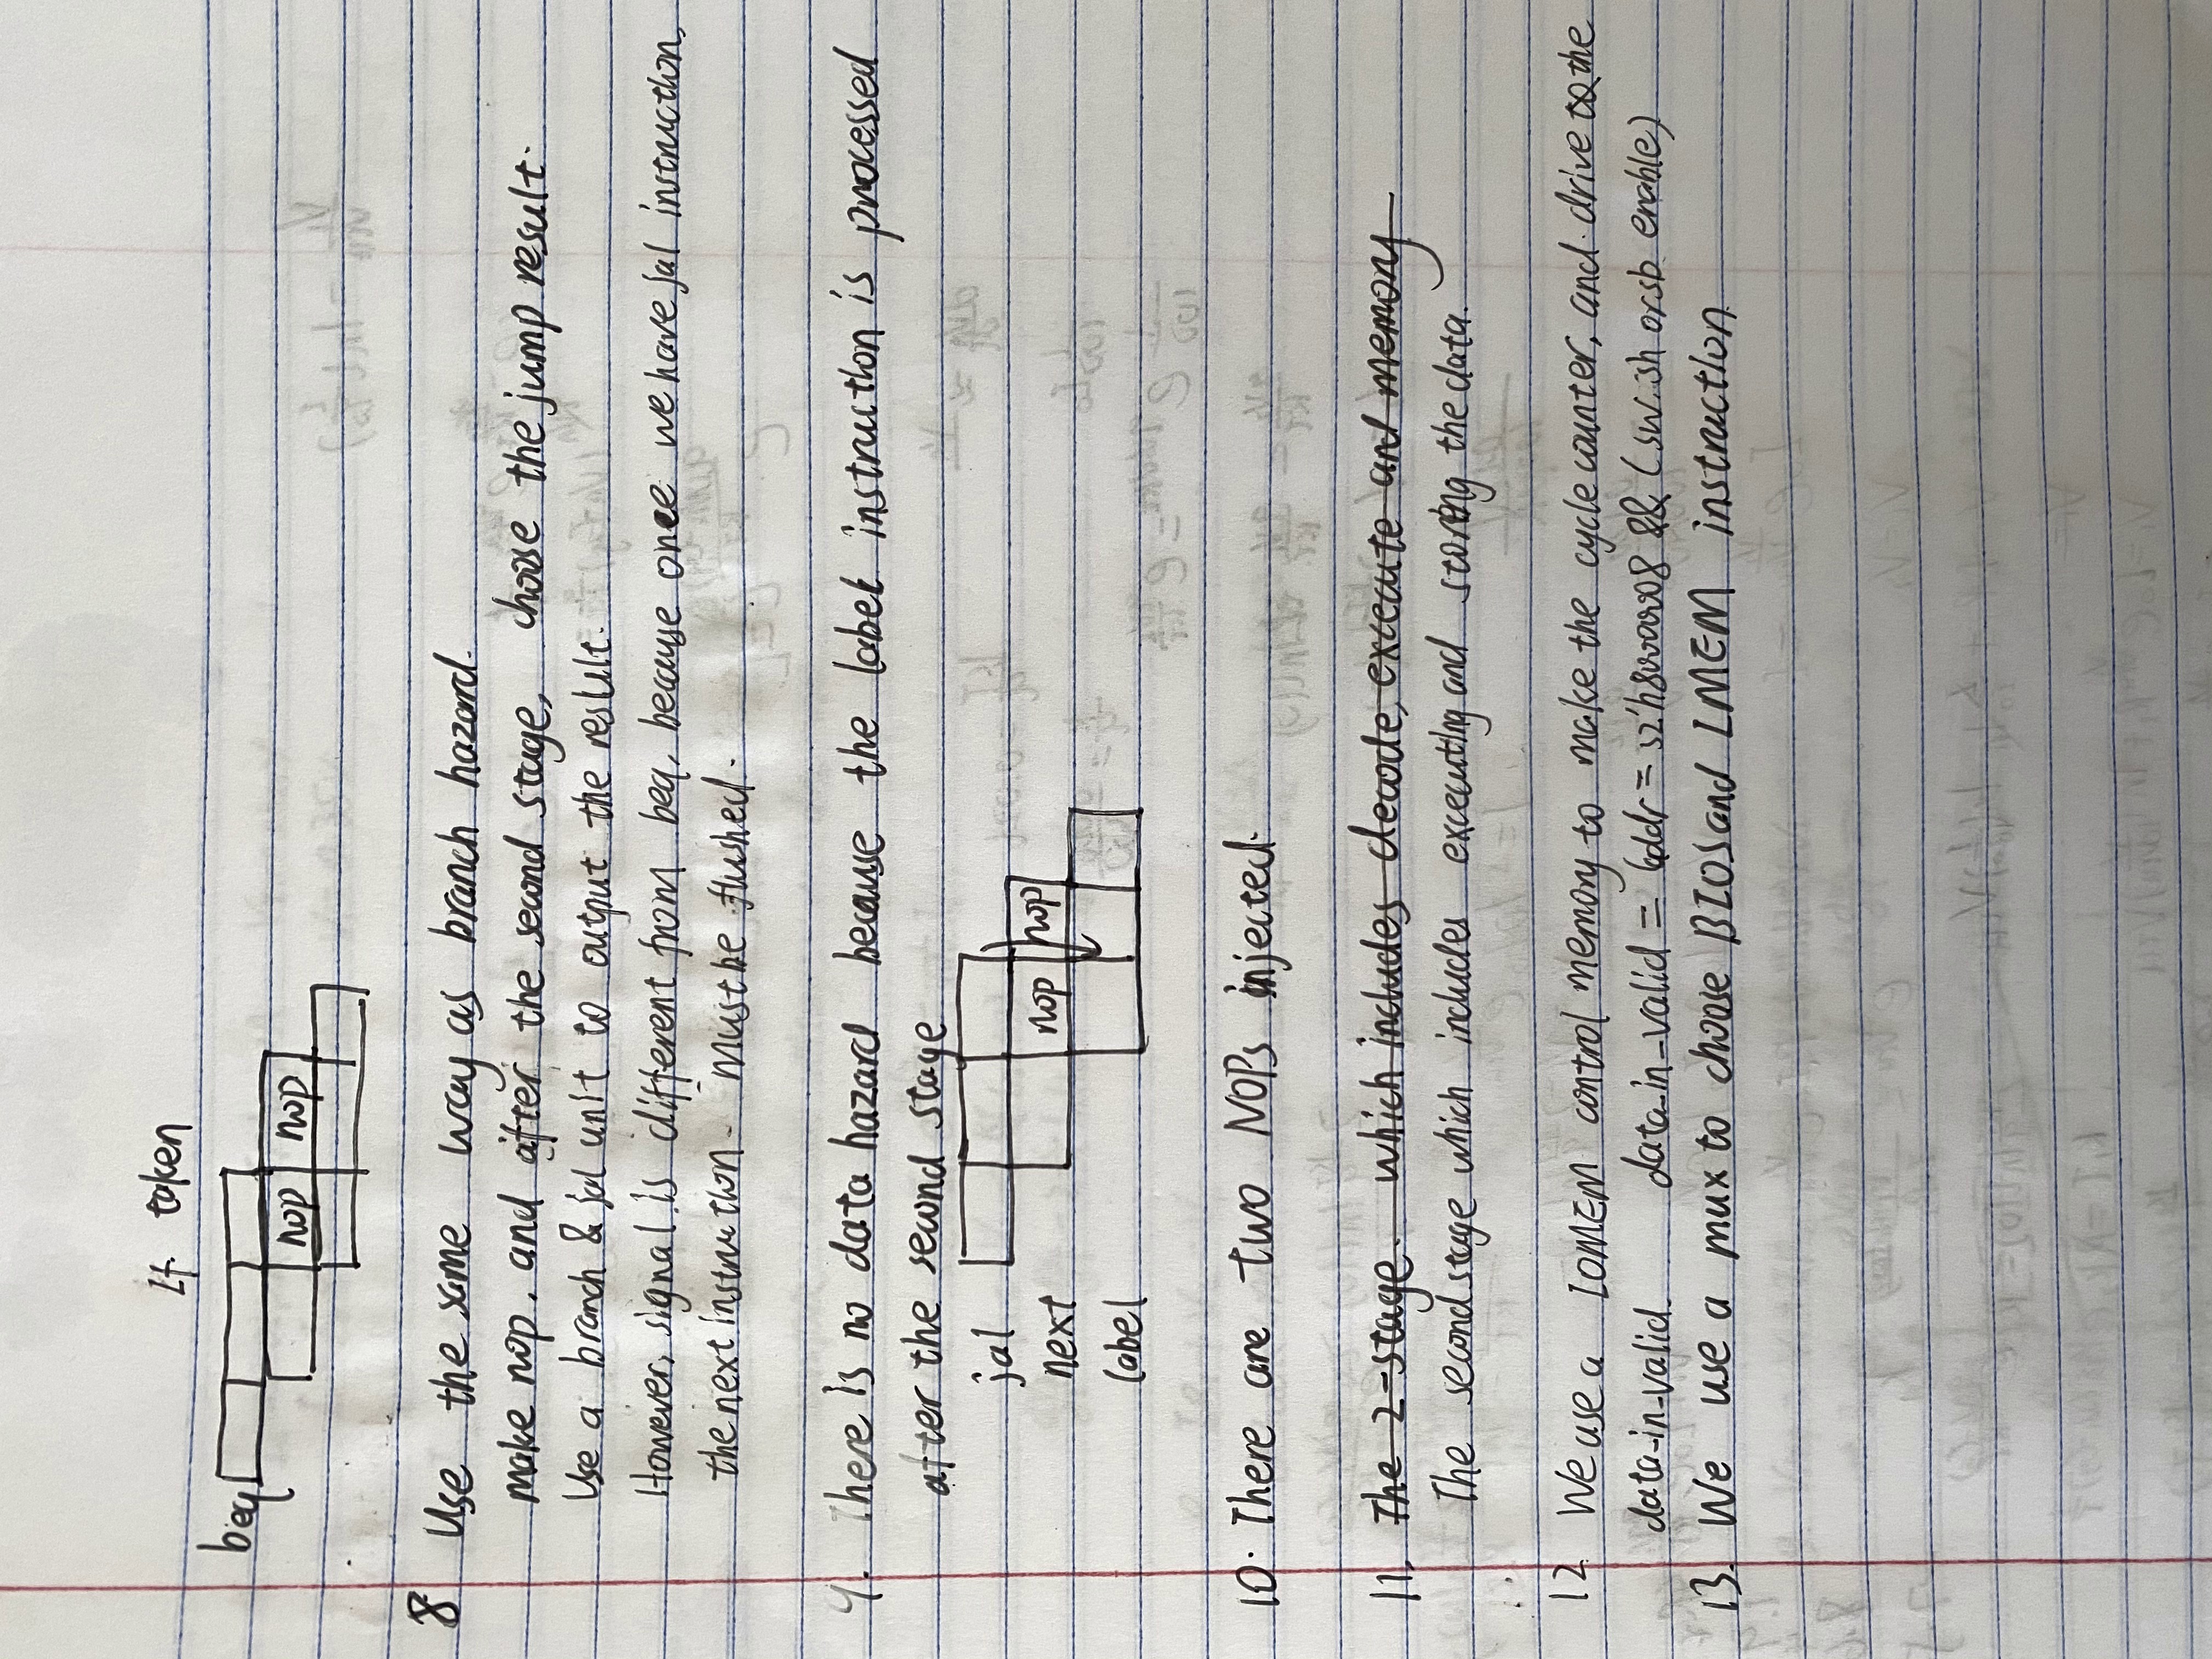 If taken
beq
nop nop
8 Use the same way as branch hazard.
make nop. and after the second stage, choose the jump result.
Use a branch & jal unit to output the result.
However, signal is different from beq, because once we have jal instruction,
the next instruction must be flushed.
9. There is no data hazard because the label instruction is processed
after the second stage
jal
next nop nop
label
10. There are two NOPs injected.
11. The 2-stage. which includes decode, excecute and memory
The second stage which includes excecuting and storing the data.
12 We use a IOMEM control memory to make the cycle counter, and drive to the
data_in_valid. data_in_valid = addr = 32'h80000008 && (sw, sh or sb enable)
13. We use a mux to choose BIOS and IMEM instruction